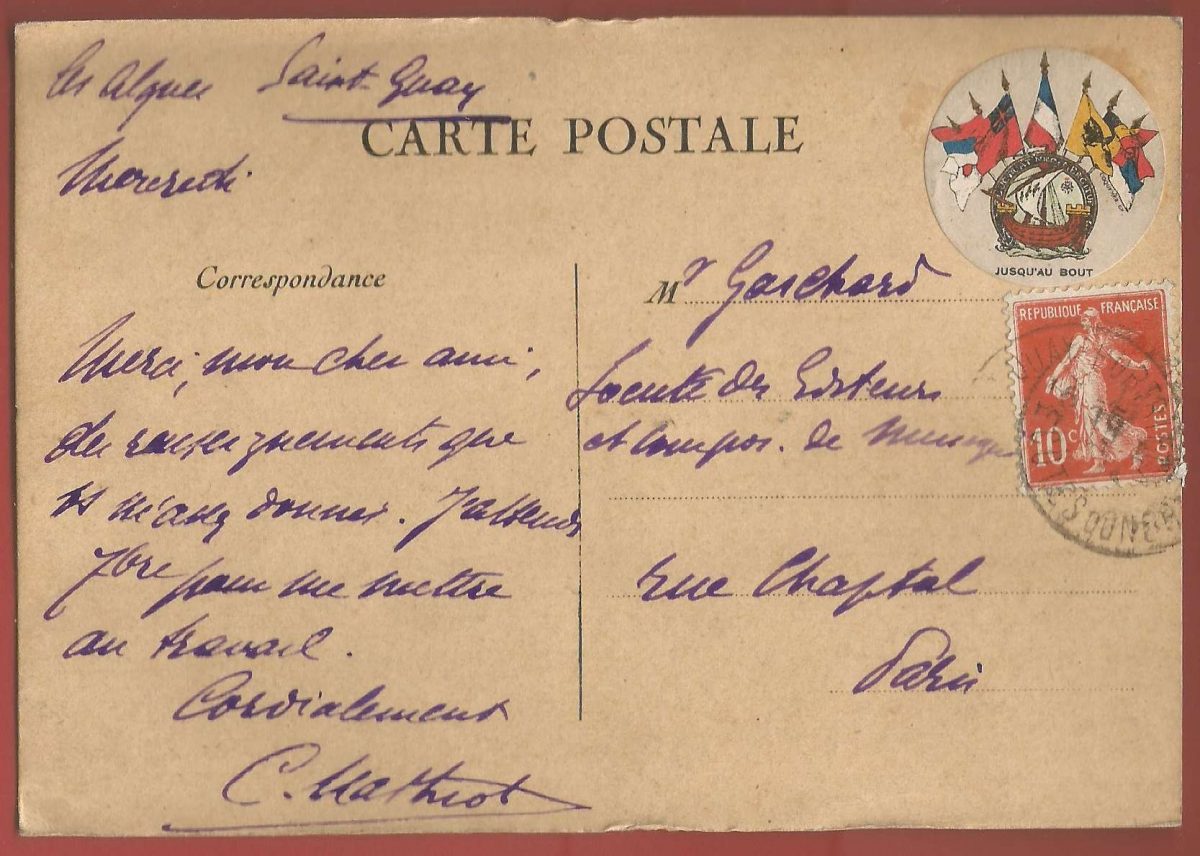 Les Algues Saint-Quay
Mercredi
CARTE POSTALE
JUSQU'AU BOUT
Correspondance
Merci, mon cher ami,
des renseignements que
vs m'avez donnés. J'attends
7bre pour me mettre
au travail.
Cordialement
C. Mathiot
Mr
Société des Editeurs
et compos. de Musique
rue Chaptal
Paris
REPUBLIQUE FRANÇAISE
10c
POSTES